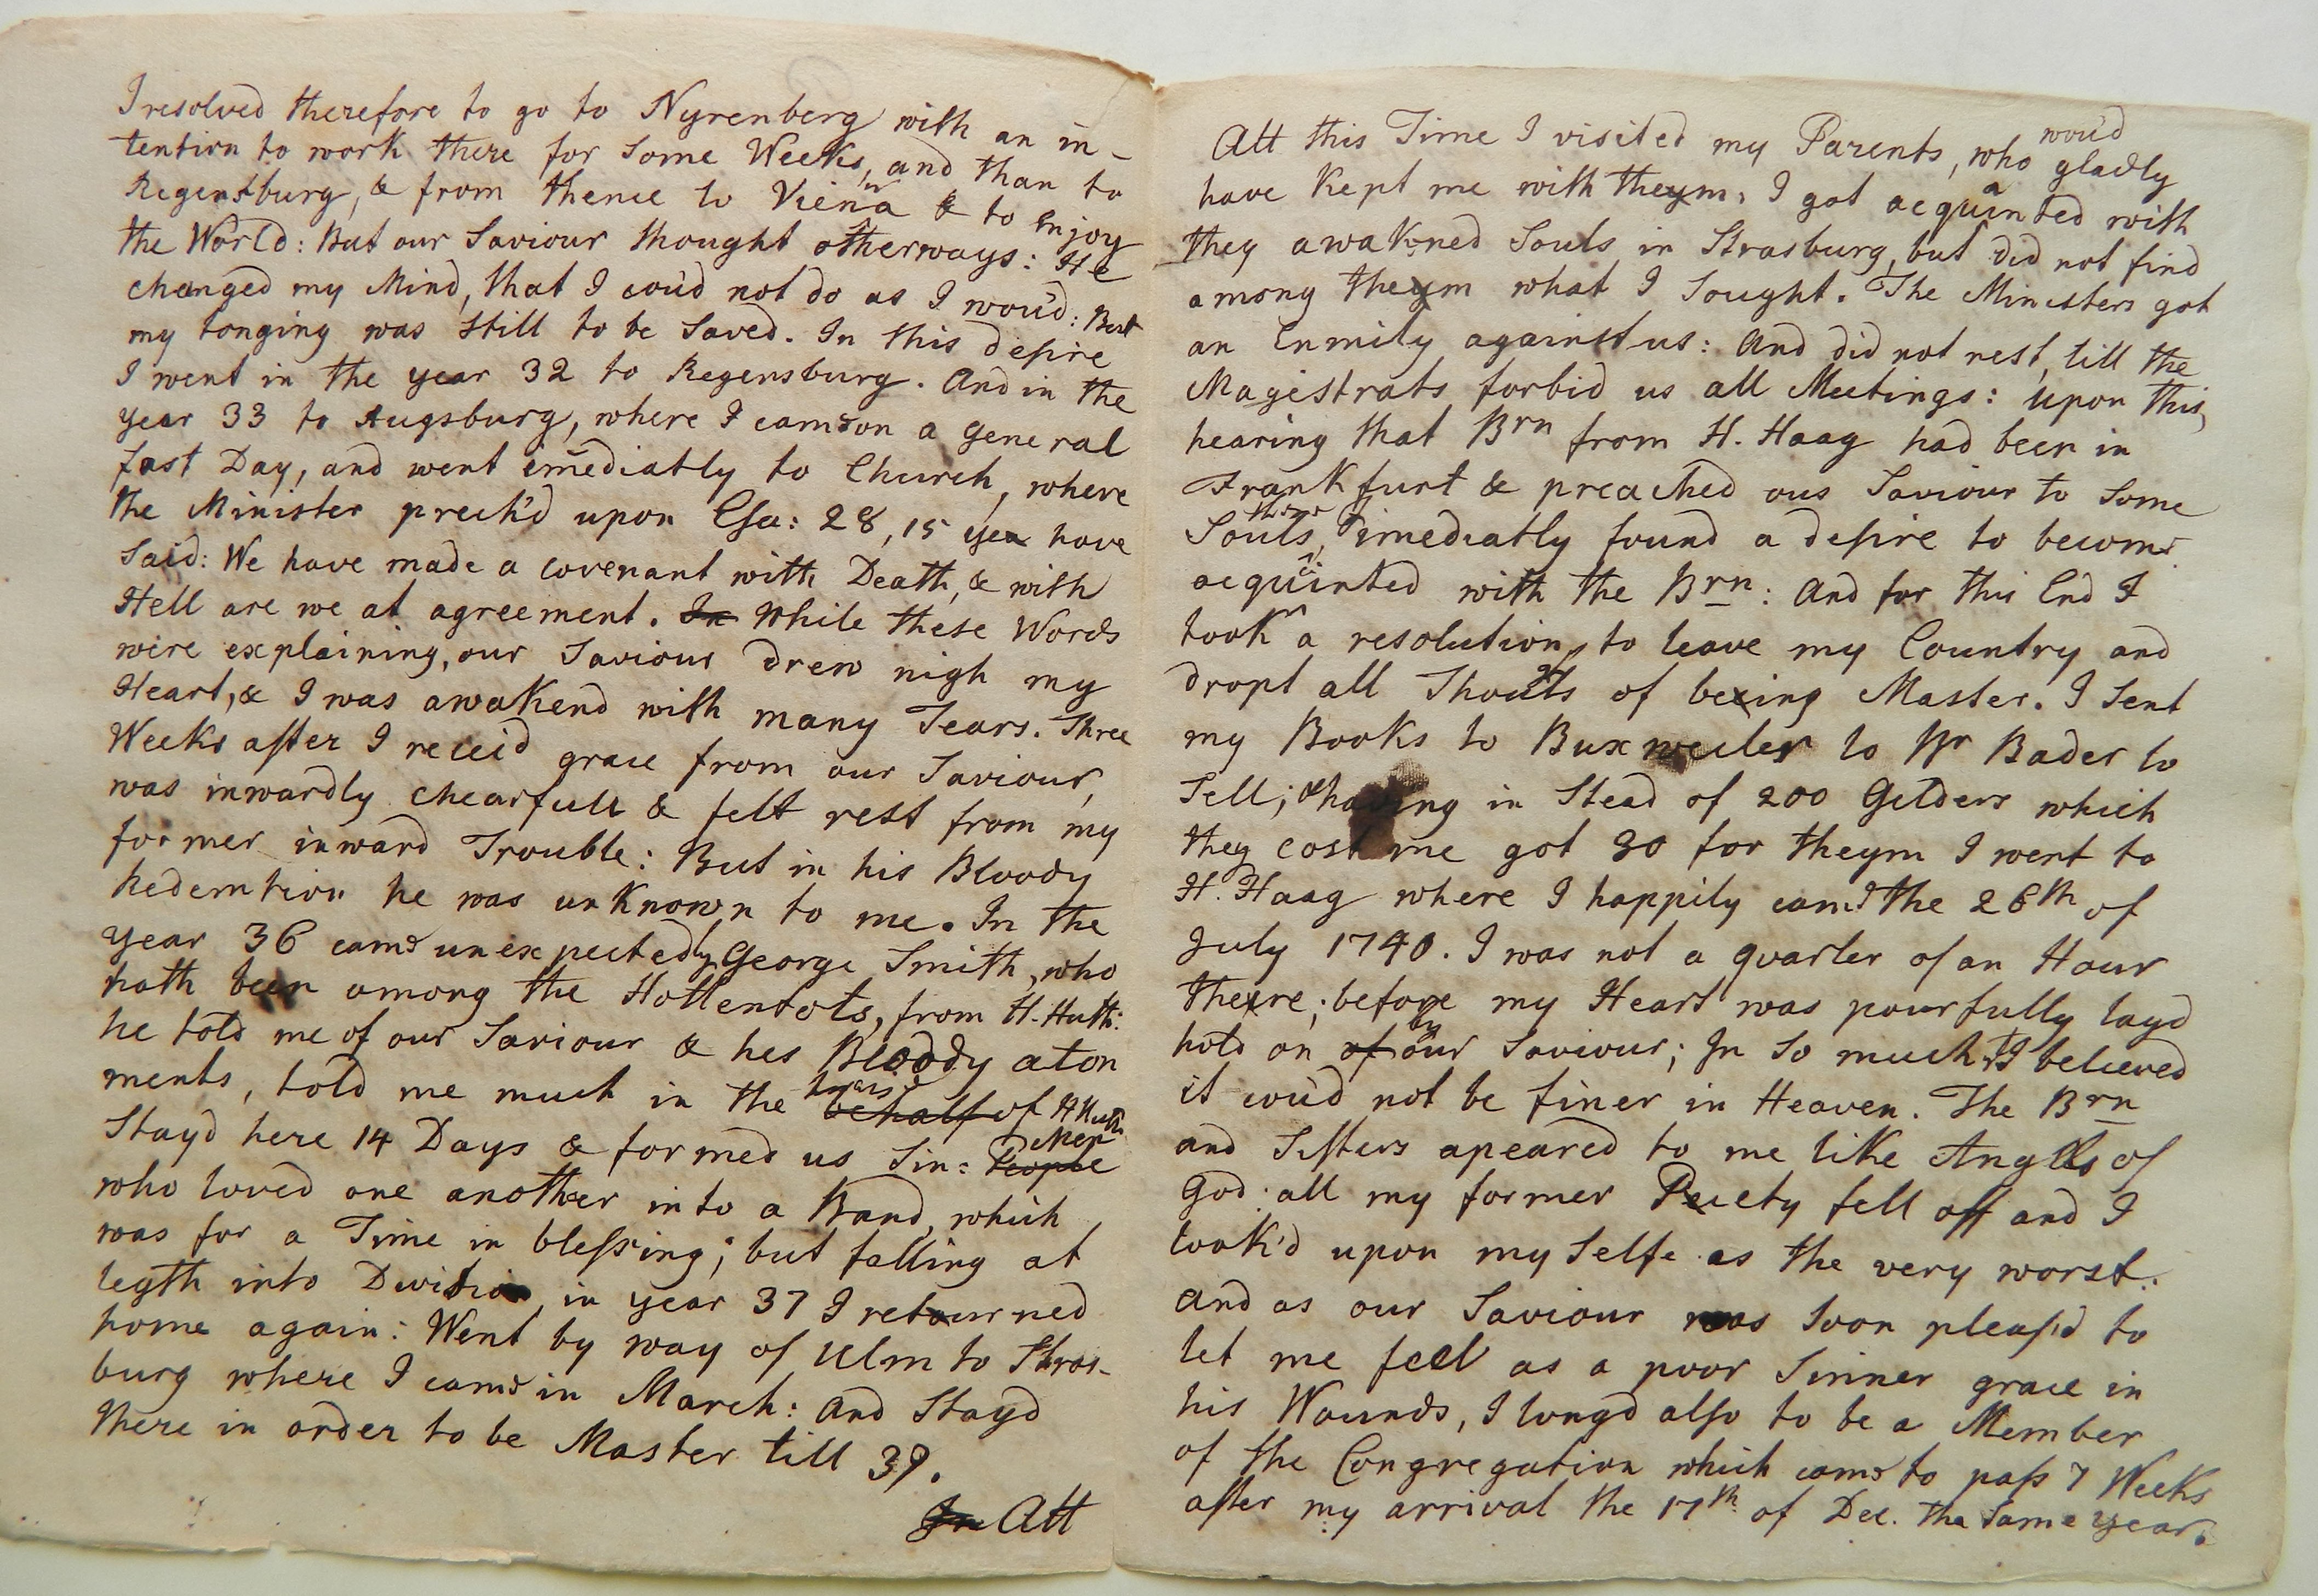 I resolved therefore to go to Nyrenberg with an in-
tention to work there for some Weeks, and than to
Regensburg, & from thence to Vieña & to Enjoy
the World: But our Saviour thought otherways: He
changed my Mind, that I cou'd not do as I wou'd: But
my longing was still to be saved. In this desire
I went in the year 32 to Regensburg. And in the
year 33 to Augsburg, where I came on a general
fast Day, and went im̃ediatly to Church, where
the Minister prech'd upon Esa: 28, 15 ye have
said: We have made a covenant with Death, & with
Hell are we at agreement. In While these Words
were explaining, our Saviour drew nigh my
Heart, & I was awakend with many Tears. Three
Weeks after I receid grace from our Saviour,
was inwardly chearfull & felt rest from my
former inward Trouble: But in his Bloody
Redemtion he was unknown to me. In the
year 36 came unexpectedly George Smith, who
hath been among the Hottentots, from H. Huth:
he told me of our Saviour & hes Bloody aton
ments, told me much in the behalf of H Huth
Stayd here 14 Days & formed us Sin: People Men
who loved one another into a Band, which
was for a Time in blessing; but falling at
legth into Division in year 37 I retourned
home again: Went by way of Ulm to Stras-
burg where I came in March: And Stayd
there in order to be Master till 39.
In Att
Att this Time I visited my Parents, who wou'd gladly
have kept me with theym. I got acquainted with
they awakned Souls in Strasburg, but did not find
among theym what I sought. The Ministers got
an Enmity against us: And did not rest, till the
Magistrats forbid us all Meetings: upon this,
hearing that Brn from H. Haag had been in
Frankfurt & preached ous Saviour to some
Souls there, I imediatly found a desire to become
acquainted with the Brn: And for this End I
took a resolution, to leave my Country and
dropt all Thoughts of being Master. I sent
my Books to Buxweiler to Mr Bader to
Sell; & having in Stead of 200 Gilders which
they cost me got 30 for theym I went to
H. Haag where I happily came the 26th of
July 1740. I was not a quarter of an Hour
there; before my Heart was pourfully layd
hold on of by our Saviour; In so much that I believed
it cou'd not be finer in Heaven. The Brn
and Sisters apeared to me like Angels of
God: all my former Piety fell off and I
look'd upon my Selfe as the very worst:
And as our Saviour was soon pleas'd to
let me feel as a poor Sinner grace in
his Wounds, I longd also to be a Member
of the Congregation which came to pass 7 Weeks
after my arrival the 17th of Dec. the same year.